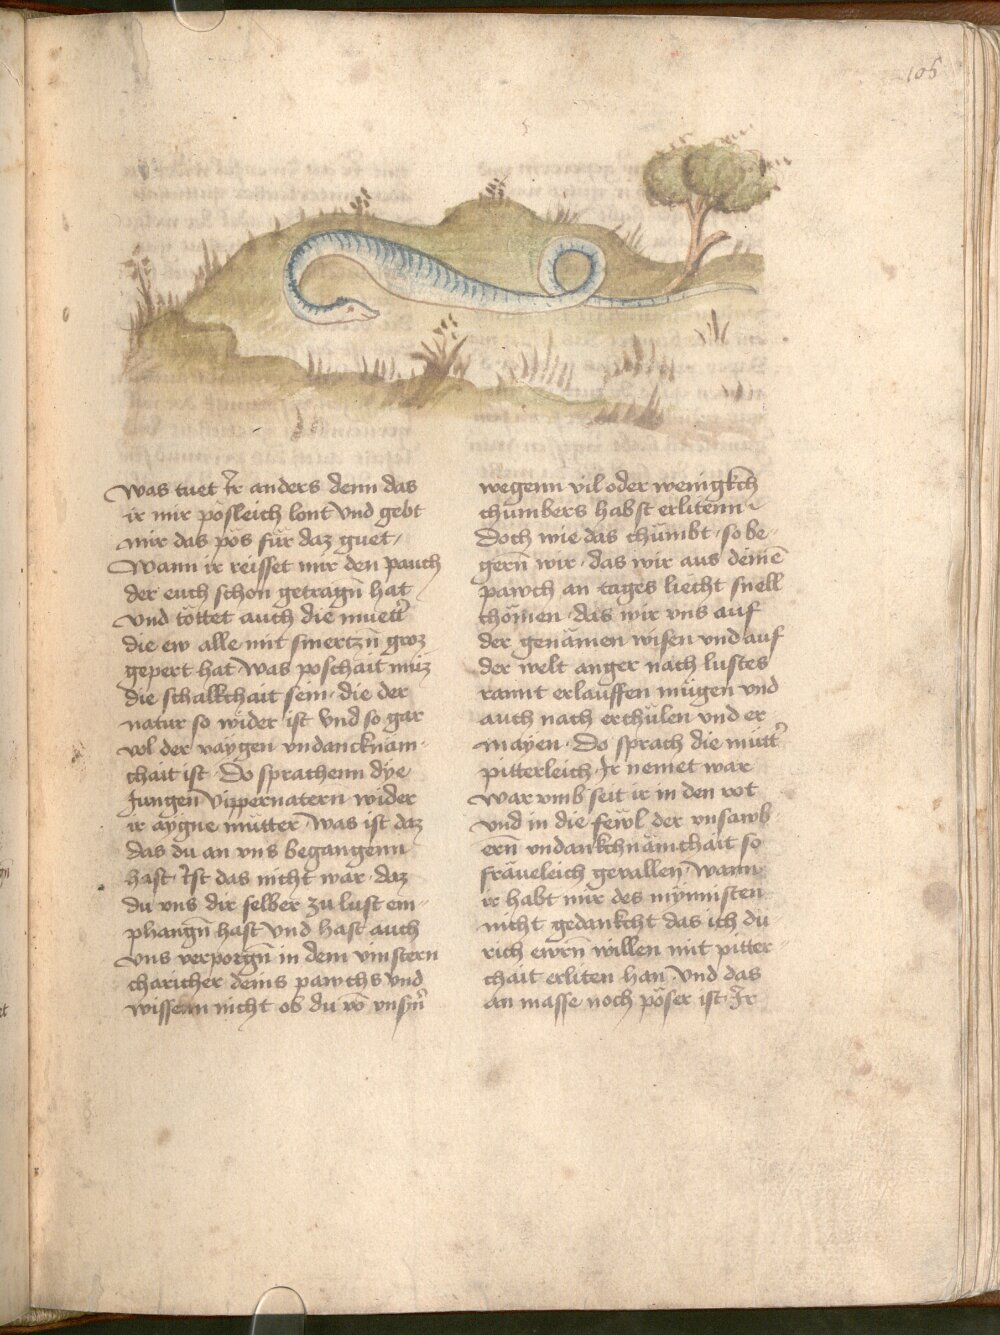 105
was tuet Ir anders denn das
ir mir posleich lont vnd gebt
mir das pös für daz guet,
Wann ir reisset mir den pauch
der euch schon getragn̄ hat
vnd töttet auch die muett̄
die ew alle mit smertzn̄ groz
gepert hat was poschait müz
die schalkchait sein · die der
natur so wider ist vnd so gar
vol der vaygen vndancknäm-
chait ist · Do sprachenn dÿe
Jungen vippernatern wider
ir aygne mütter was ist daz
das du an vns begangenn
hast · Ist das nicht war · daz
du vns dir selber zu lust em-
phangn̄ hast vnd hast auch
vns verporgn̄ in dem vinstern
charicher deins pawchs vnd
wissenn nicht ob du vō vnsn̄
wegenn vil oder wenigkch
chumbers habst erlitenn
Doch wie das chümbt · so be-
gern̄ wir · das wir aus deinē
pawch an tages liecht snell
chömen · das wir vns auf
der genämen wisen vnd auf
der welt anger nach lustes
ramt erlauffen mügen vnd
auch nach erchülen vnd er
mayen · Do sprach die mütt̄
pitterleich · Ir nemet war
war vmb seit ir in den rot
vnd in die fewl der vnsawb
ern vndankchnämchait so
fräueleich geuallen wann
ir habt mir des mynnisten
nicht gedankcht das ich du
rich ewrn̄ willen mit pitter-
chait erliten han vnd das
an masse noch pöser ist · Ir